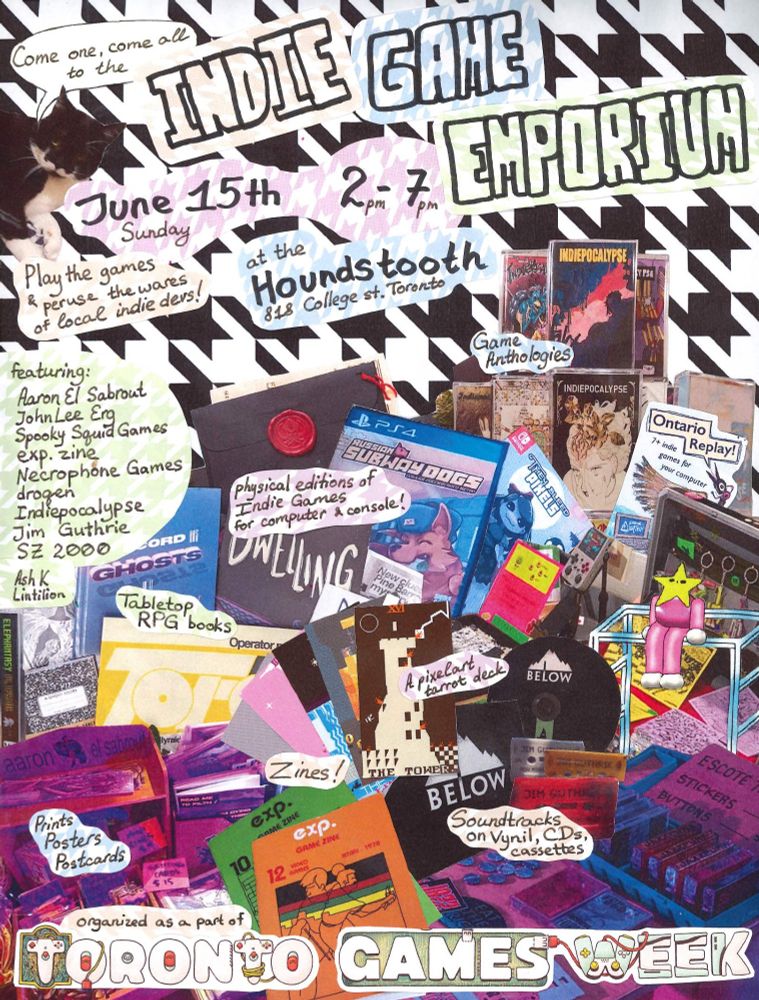 Come one, come all
to the
INDIE GAME
EMPORIUM
June 15th 2pm-7pm
Sunday
at the
Houndstooth
818 College st. Toronto
Play the games
& peruse the wares
of local indie devs!
INDIEPOCALYPSE
Game
Anthologies
INDIEPOCALYPSE
featuring:
Aaron El Sabrout
JohnLee Erg
Spooky Squid Games
exp. zine
Necrophone Games
drogen
Indiepocalypse
Jim Guthrie
SZ 2000
Ash K
Lintilion
Ontario
Replay!
7+ indie
games for
your computer
PS4
RUSSIAN
SUBWAY DOGS
physical editions of
Indie Games
for computer & console!
DWELLING
GHOSTS
Tabletop
RPG books
Operator
XVI
A pixelart
tarrot deck
THE TOWER
BELOW
BELOW
ELEPHANTASY
aaron el sabrout
Zines!
JIM GUTHRIE
Soundtracks
on Vynil, CDs,
cassettes
STICKERS
BUTTONS
Prints
Posters
Postcards
CARDS
$15
exp.
10
exp.
GAME ZINE
12
organized as a part of
TORONTO GAMES WEEK